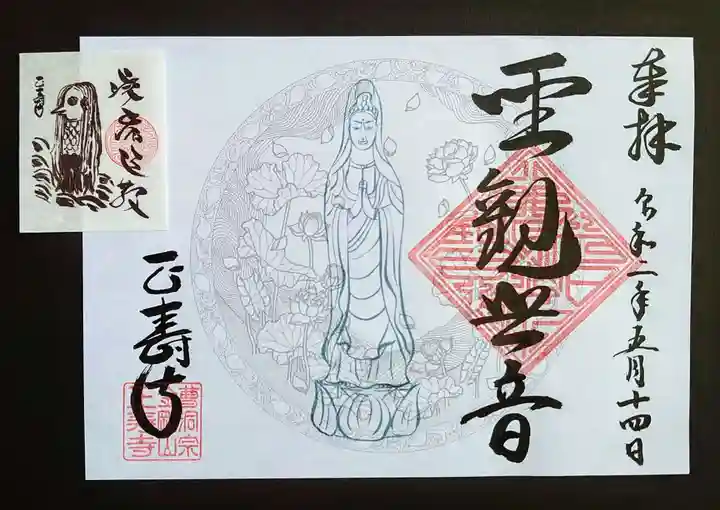 奉拝
令和二年五月十四日
聖観世音
正寿寺
曹洞宗
疫病退散